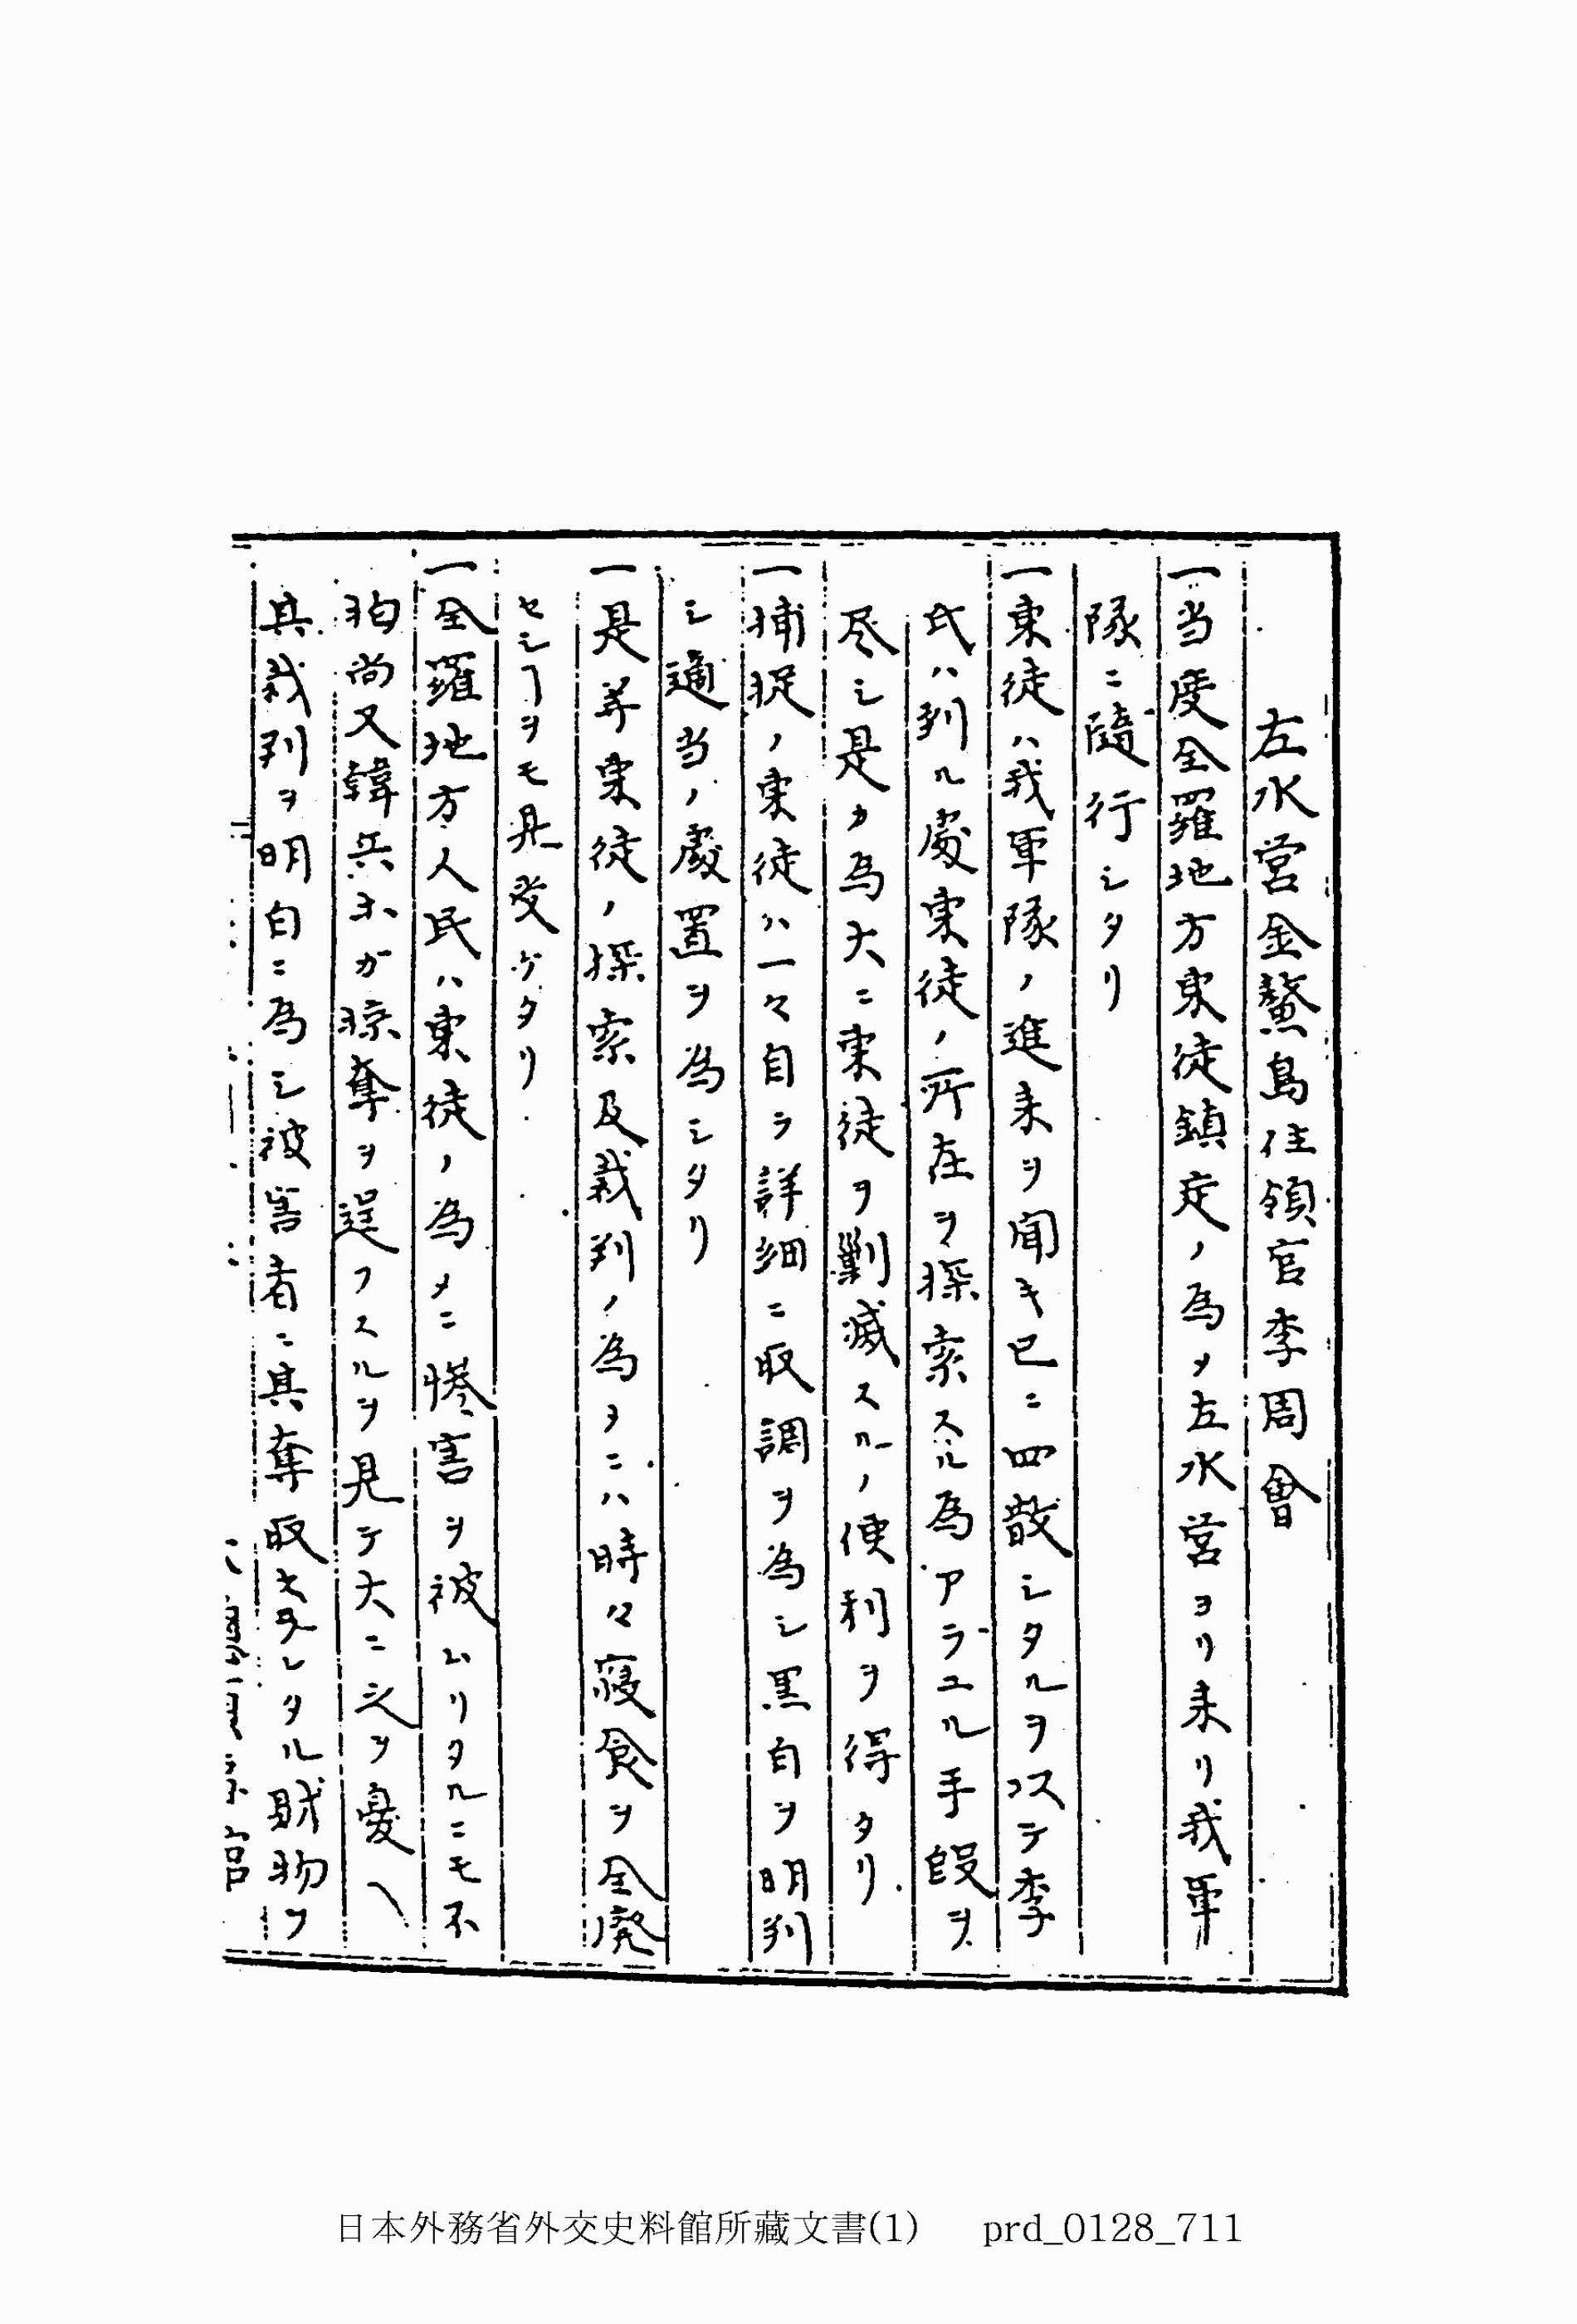 左水営金鰲島住領官李周會
一当度全羅地方東徒鎮定ノ為メ左水営ヨリ来リ我軍
隊ニ隨行シタリ
一東徒ハ我軍隊ノ進来ヲ聞キ已ニ四散シタルヲ以テ李
氏ハ到ル處東徒ノ所在ヲ探索スル為アラユル手段ヲ
尽シ是カ為大ニ東徒ヲ剿滅スルノ便利ヲ得タリ
一捕捉ノ東徒ハ一々自ラ詳細ニ取調ヲ為シ黒白ヲ明判
シ適当ノ處置ヲ為シタリ
一是等東徒ノ探索及裁判ノ為ヲニハ時々寝食ヲ全廃
セシヿヲモ見受ケタリ
一全羅地方人民ハ東徒ノ為メニ惨害ヲ被ムリタルニモ不
拘尚又韓兵等ガ掠奪ヲ逞フスルヲ見テ大ニ之ヲ憂ヘ
其裁判ヲ明白ニ為シ被害者ニ其奪取セラレタル財物ヲ
日本外務省外交史料館所藏文書(1) prd_0128_711